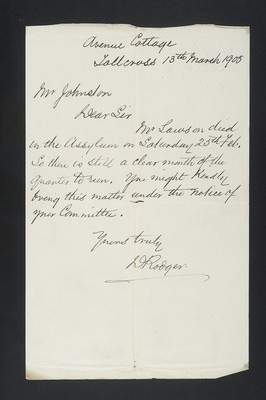 Avenue Cottage
Tollcross 13th March 1905
Mr Johnston
Dear Sir
Mr Lawson died
in the Assylum on Saturday 25th Feb.
So there is still a clear month of the
quarter to run. You might kindly
bring this matter under the notice of
your Committee.
Yours truly
D Rodger